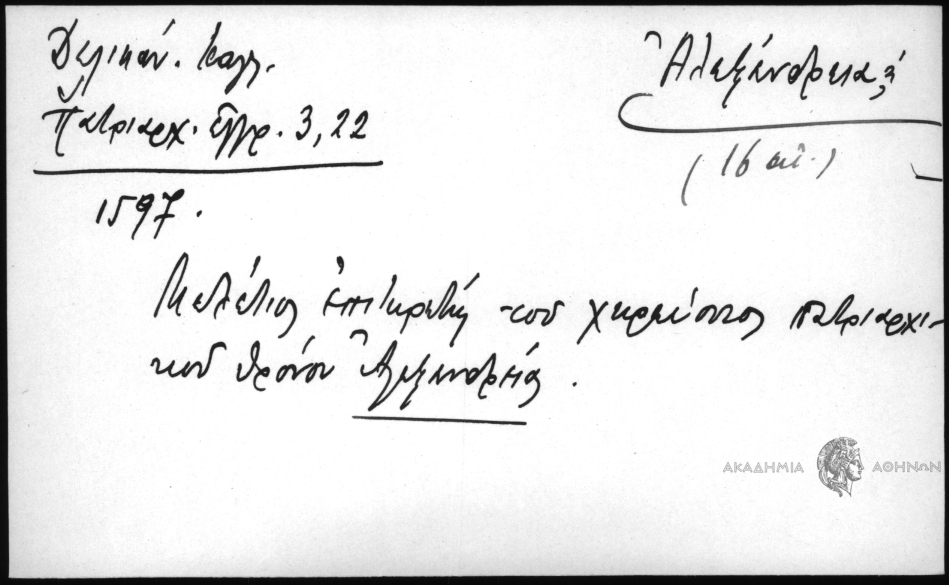 Δελικάν. Καλλ.
Πατριαρχ. Ἔγγρ. 3, 22
Ἀλεξάνδρεια, ἡ
(16 αἰ.)
1597.
Μελέτιος ἐπιτηρητής τοῦ χηρεύοντος πατριαρχι-
κοῦ θρόνου Ἀλεξανδρείας.
ΑΚΑΔΗΜΙΑ ΑΘΗΝΩΝ